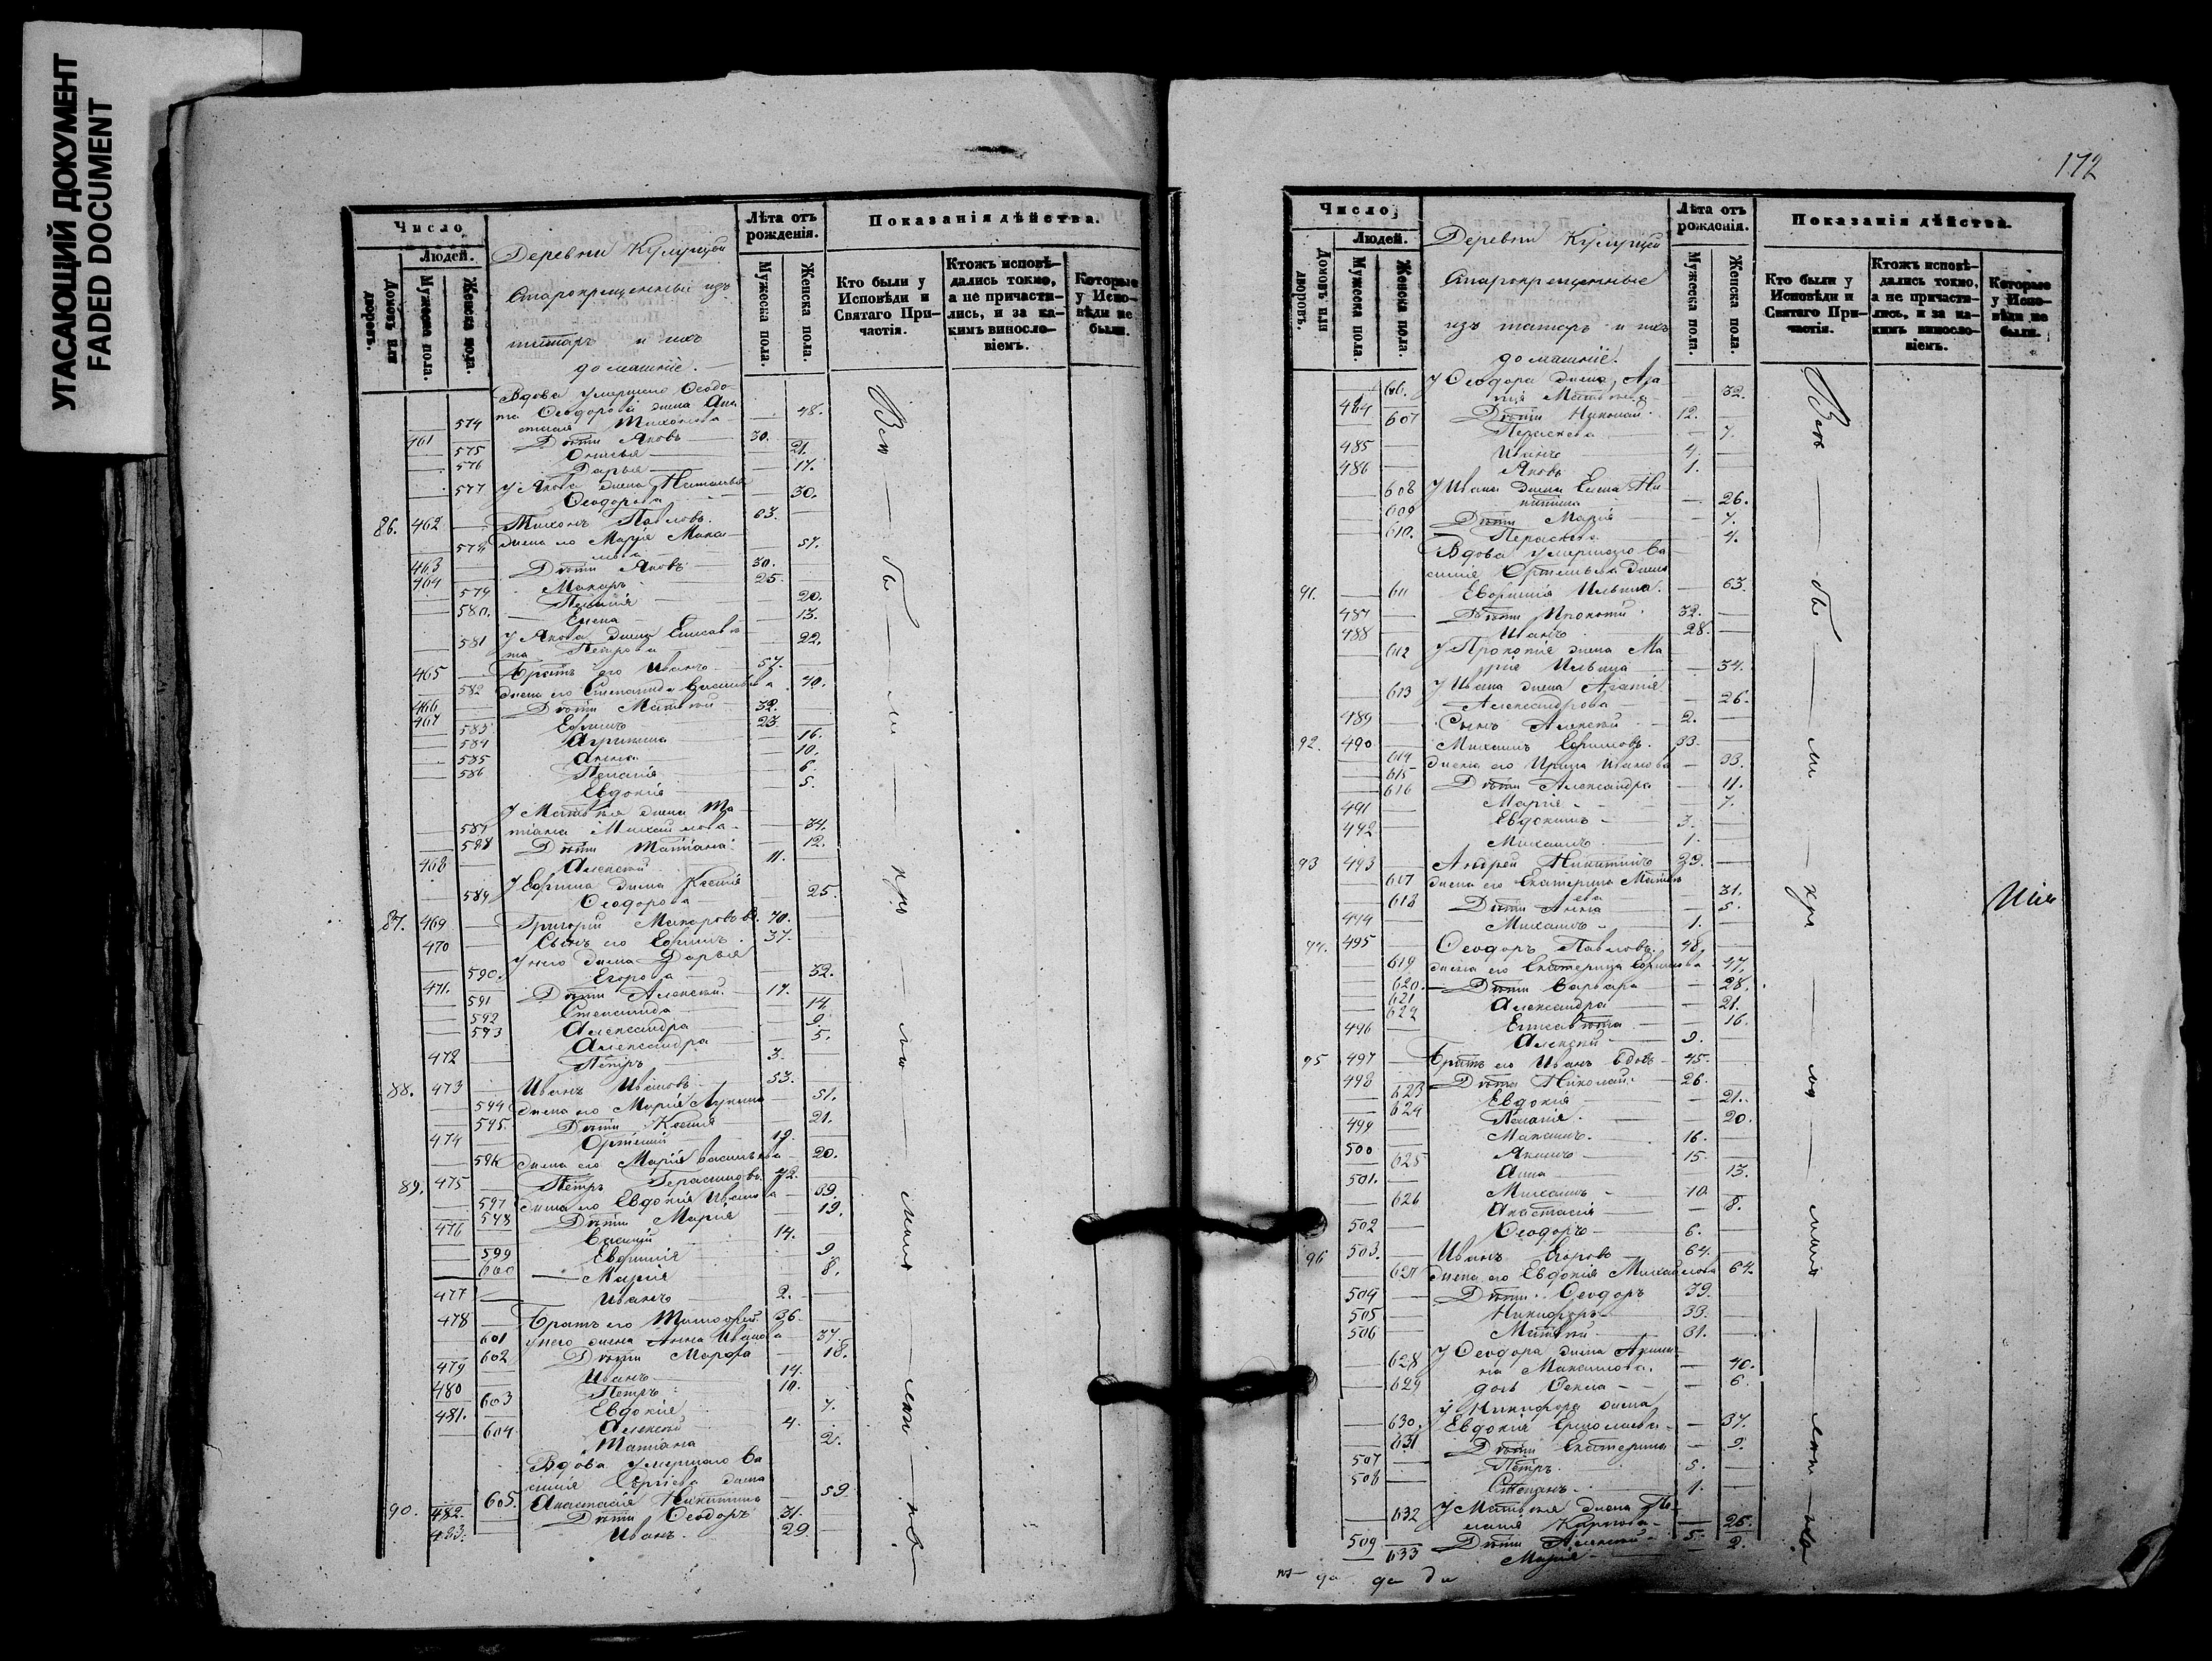 УГАСАЮЩИЙ ДОКУМЕНТ
FADED DOCUMENT
Число
Людей.
Домовъ или дворовъ.
Мужеска пола.
Женска пола.
Деревни Кулущи
Старокрещенные изъ
татаръ и ихъ
домашніе.
Лѣта отъ рожденія.
Мужеска пола.
Женска пола.
Показанія дѣйства.
Кто были у Исповѣди и Святаго Причастія.
Ктожъ исповѣдались токмо, а не причастились, и за какимъ винословіемъ.
Которые у Исповѣди не были.
Вдова умершаго Ѳеодо-
та Ѳеодорова жена Ана-
574 стасія Тихонова — 48.
461 Дѣти Яковъ 30.
575 21.
576 Дарья 17.
577 У Якова жена Наталья
Ѳеодорова 30.
86. 462 Тихонъ Павловъ. 63.
578 жена его Марія Макси-
мова 57.
463 Дѣти Яковъ 30.
464 Макаръ 25.
579 Пелагія 20.
580. Елена 13.
581 У Якова жена Елисаве-
та Петрова 22.
465 Братъ его Иванъ 57.
582 жена его Степанида Васильева 40.
466 Дѣти Матвѣй 32.
467 Ефимъ 23.
583 Агрипина 16.
584 Анна 10.
585 Пелагія 6.
586 Евдокія 5.
У Матвѣя жена Та-
587 тіана Михайлова 34.
588 Дѣти Татіана 12.
468 Алексѣй 11.
589 У Ефима жена Ксенія
Ѳеодорова 25.
87. 469 Григорій Макаровъ вд. 70.
470 Сынъ его Ефимъ 37.
У него жена Дарья
590. Егорова 32.
471. Дѣти Алексѣй 17.
591 Степанида 14.
592 Александра 9.
593 Александра 5.
472 Петръ 3.
88. 473 Иванъ Ивановъ 53.
594 жена его Марія Лукина 51.
595. Дѣти Ксенія 21.
474 Артемій 19.
596 жена его Марія Васильева 20.
89. 475 Петръ Герасимовъ 42.
597 жена его Евдокія Иванова 39.
598 Дѣти Марія 19.
476 Василій 14.
599 Евфимія 9.
600 Марія 8.
477 Иванъ 2.
478 Братъ его Тимофей 36.
601 у него жена Анна Иванова 37.
602 Дѣти Марфа 18.
479 Иванъ 14.
480 Петръ 10.
603 Евдокія 7.
481. Алексѣй 4.
604 Татіана 2.
Вдова умершаго Ва-
силія Сергіева жена
605. Анастасія Никитина 59
90. 482. Дѣти Ѳеодоръ 31.
483. Иванъ 29
Всѣ — бы — ли — при
172
Число
Людей.
Домовъ или дворовъ.
Мужеска пола.
Женска пола.
Деревни Кулущи
Старокрещенные
изъ татаръ и ихъ
домашніе.
Лѣта отъ рожденія.
Мужеска пола.
Женска пола.
Показанія дѣйства.
Кто были у Исповѣди и Святаго Причастія.
Ктожъ исповѣдались токмо, а не причастились, и за какимъ винословіемъ.
Которые у Исповѣди не были.
606. У Ѳеодора жена Ага-
пія Матвѣева 32.
484 Дѣти Николай 12.
607 Параскева 7.
485 Иванъ 4.
486 Яковъ 1.
608 У Ивана жена Елена Ни-
китина 26.
609 Дѣти Марія 7.
610. Параскева 4.
Вдова умершаго Ва-
силія Артемьева жена
91. 611 Евфимія Ильина 63.
487 Дѣти Прокопій 32.
488 Иванъ 28.
612 У Прокопія жена Ма-
рія Ильина 34.
613 У Ивана жена Агапія
Александрова 26.
489 Сынъ Алексѣй 2.
92. 490 Михаилъ Ефимовъ 33.
614 жена его Ирина Иванова 33.
615 Дѣти Александра 11.
616 Марія 7.
491 Евдокимъ 3.
492 Михаилъ 1.
93 493 Андрей Никитинъ 29.
617 жена его Екатерина Матвѣ-
ева 31.
618 Дѣти Анна 5.
494 Михаилъ 1.
94. 495 Ѳеодоръ Павловъ 48.
619 жена его Екатерина Ефимова 47.
620. Дѣти Варвара 28.
621 Александра 21.
622 Елисавета 16.
496 Алексѣй 9.
95 497 Братъ его Иванъ вдовъ 45.
498 Дѣти Николай 26.
623 Евдокія 21.
624 Пелагія 20.
499 Максимъ 16.
500 Акимъ 15.
625 Анна 13.
501. Михаилъ 10.
626 Анастасія 8.
502 Ѳеодоръ 6.
96 503. Иванъ Егоровъ 64.
627 жена его Евдокія Михайлова 64.
504 Дѣти Ѳеодоръ 39.
505 Никифоръ 33.
506 Матвѣй 31.
628 У Ѳеодора жена Акили-
на Максимова 40.
629 дочь Ѳекла 6.
У Никифора жена
630. Евдокія Ермолаева 37.
631 Дѣти Екатерина 9.
507 Петръ 5.
508 Степанъ 1.
632 У Матвѣя жена Пе-
лагія Карпова 25.
509 Дѣти Алексѣй 5.
633 Марія 2.
Всѣ — бы — ли — при